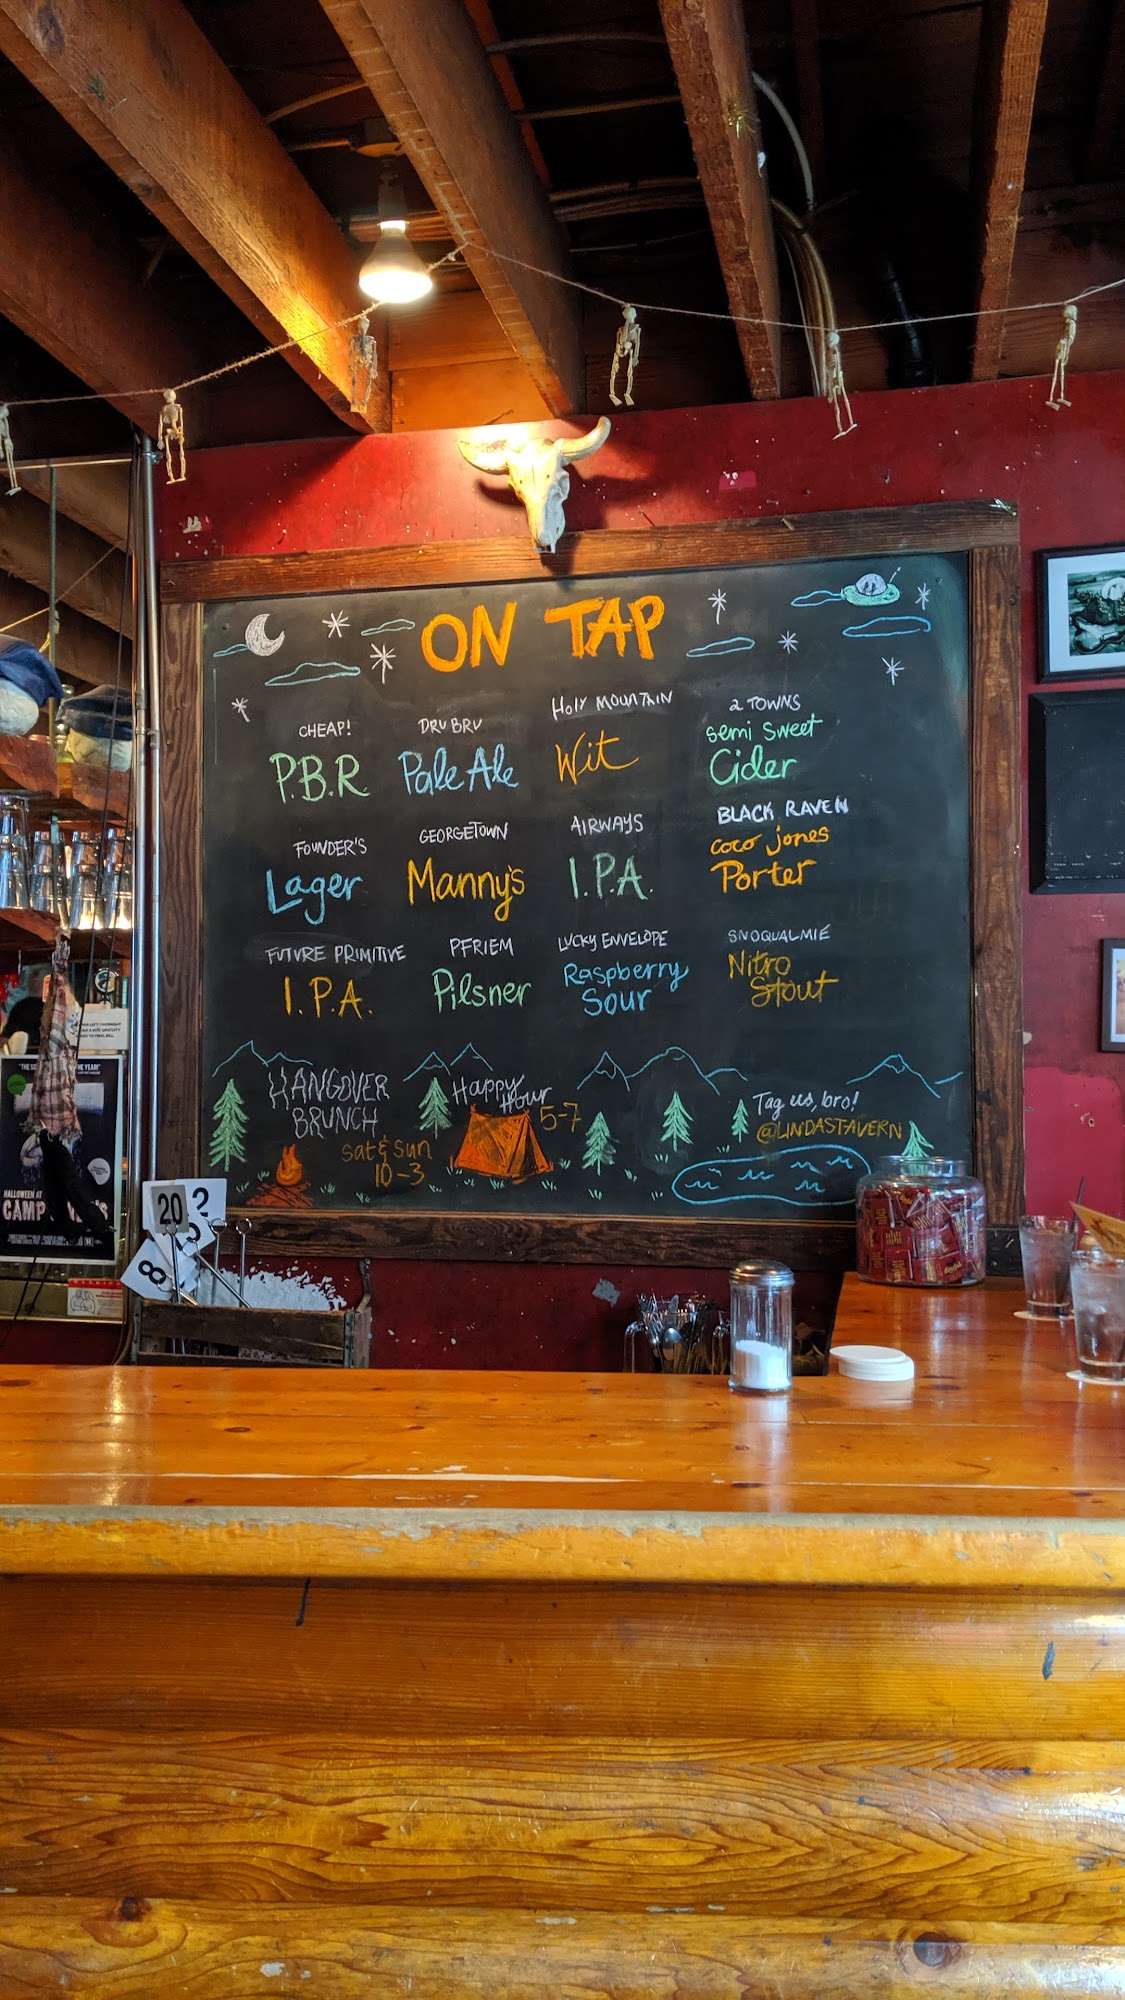 ON TAP
CHEAP!
P.B.R.
DRU BRU
Pale Ale
HOLY MOUNTAIN
Wit
2 TOWNS
Semi Sweet
Cider
FOUNDER'S
Lager
GEORGETOWN
Manny's
AIRWAYS
I.P.A.
BLACK RAVEN
coco jones
Porter
FUTURE PRIMITIVE
I.P.A.
PFRIEM
Pilsner
LUCKY ENVELOPE
Raspberry
Sour
SNOQUALMIE
Nitro
Stout
HANGOVER
BRUNCH
sat & sun
10-3
Happy
Hour
5-7
Tag us, bro!
@LINDASTAVERN
HALLOWEEN AT
CAMP
20
2
8